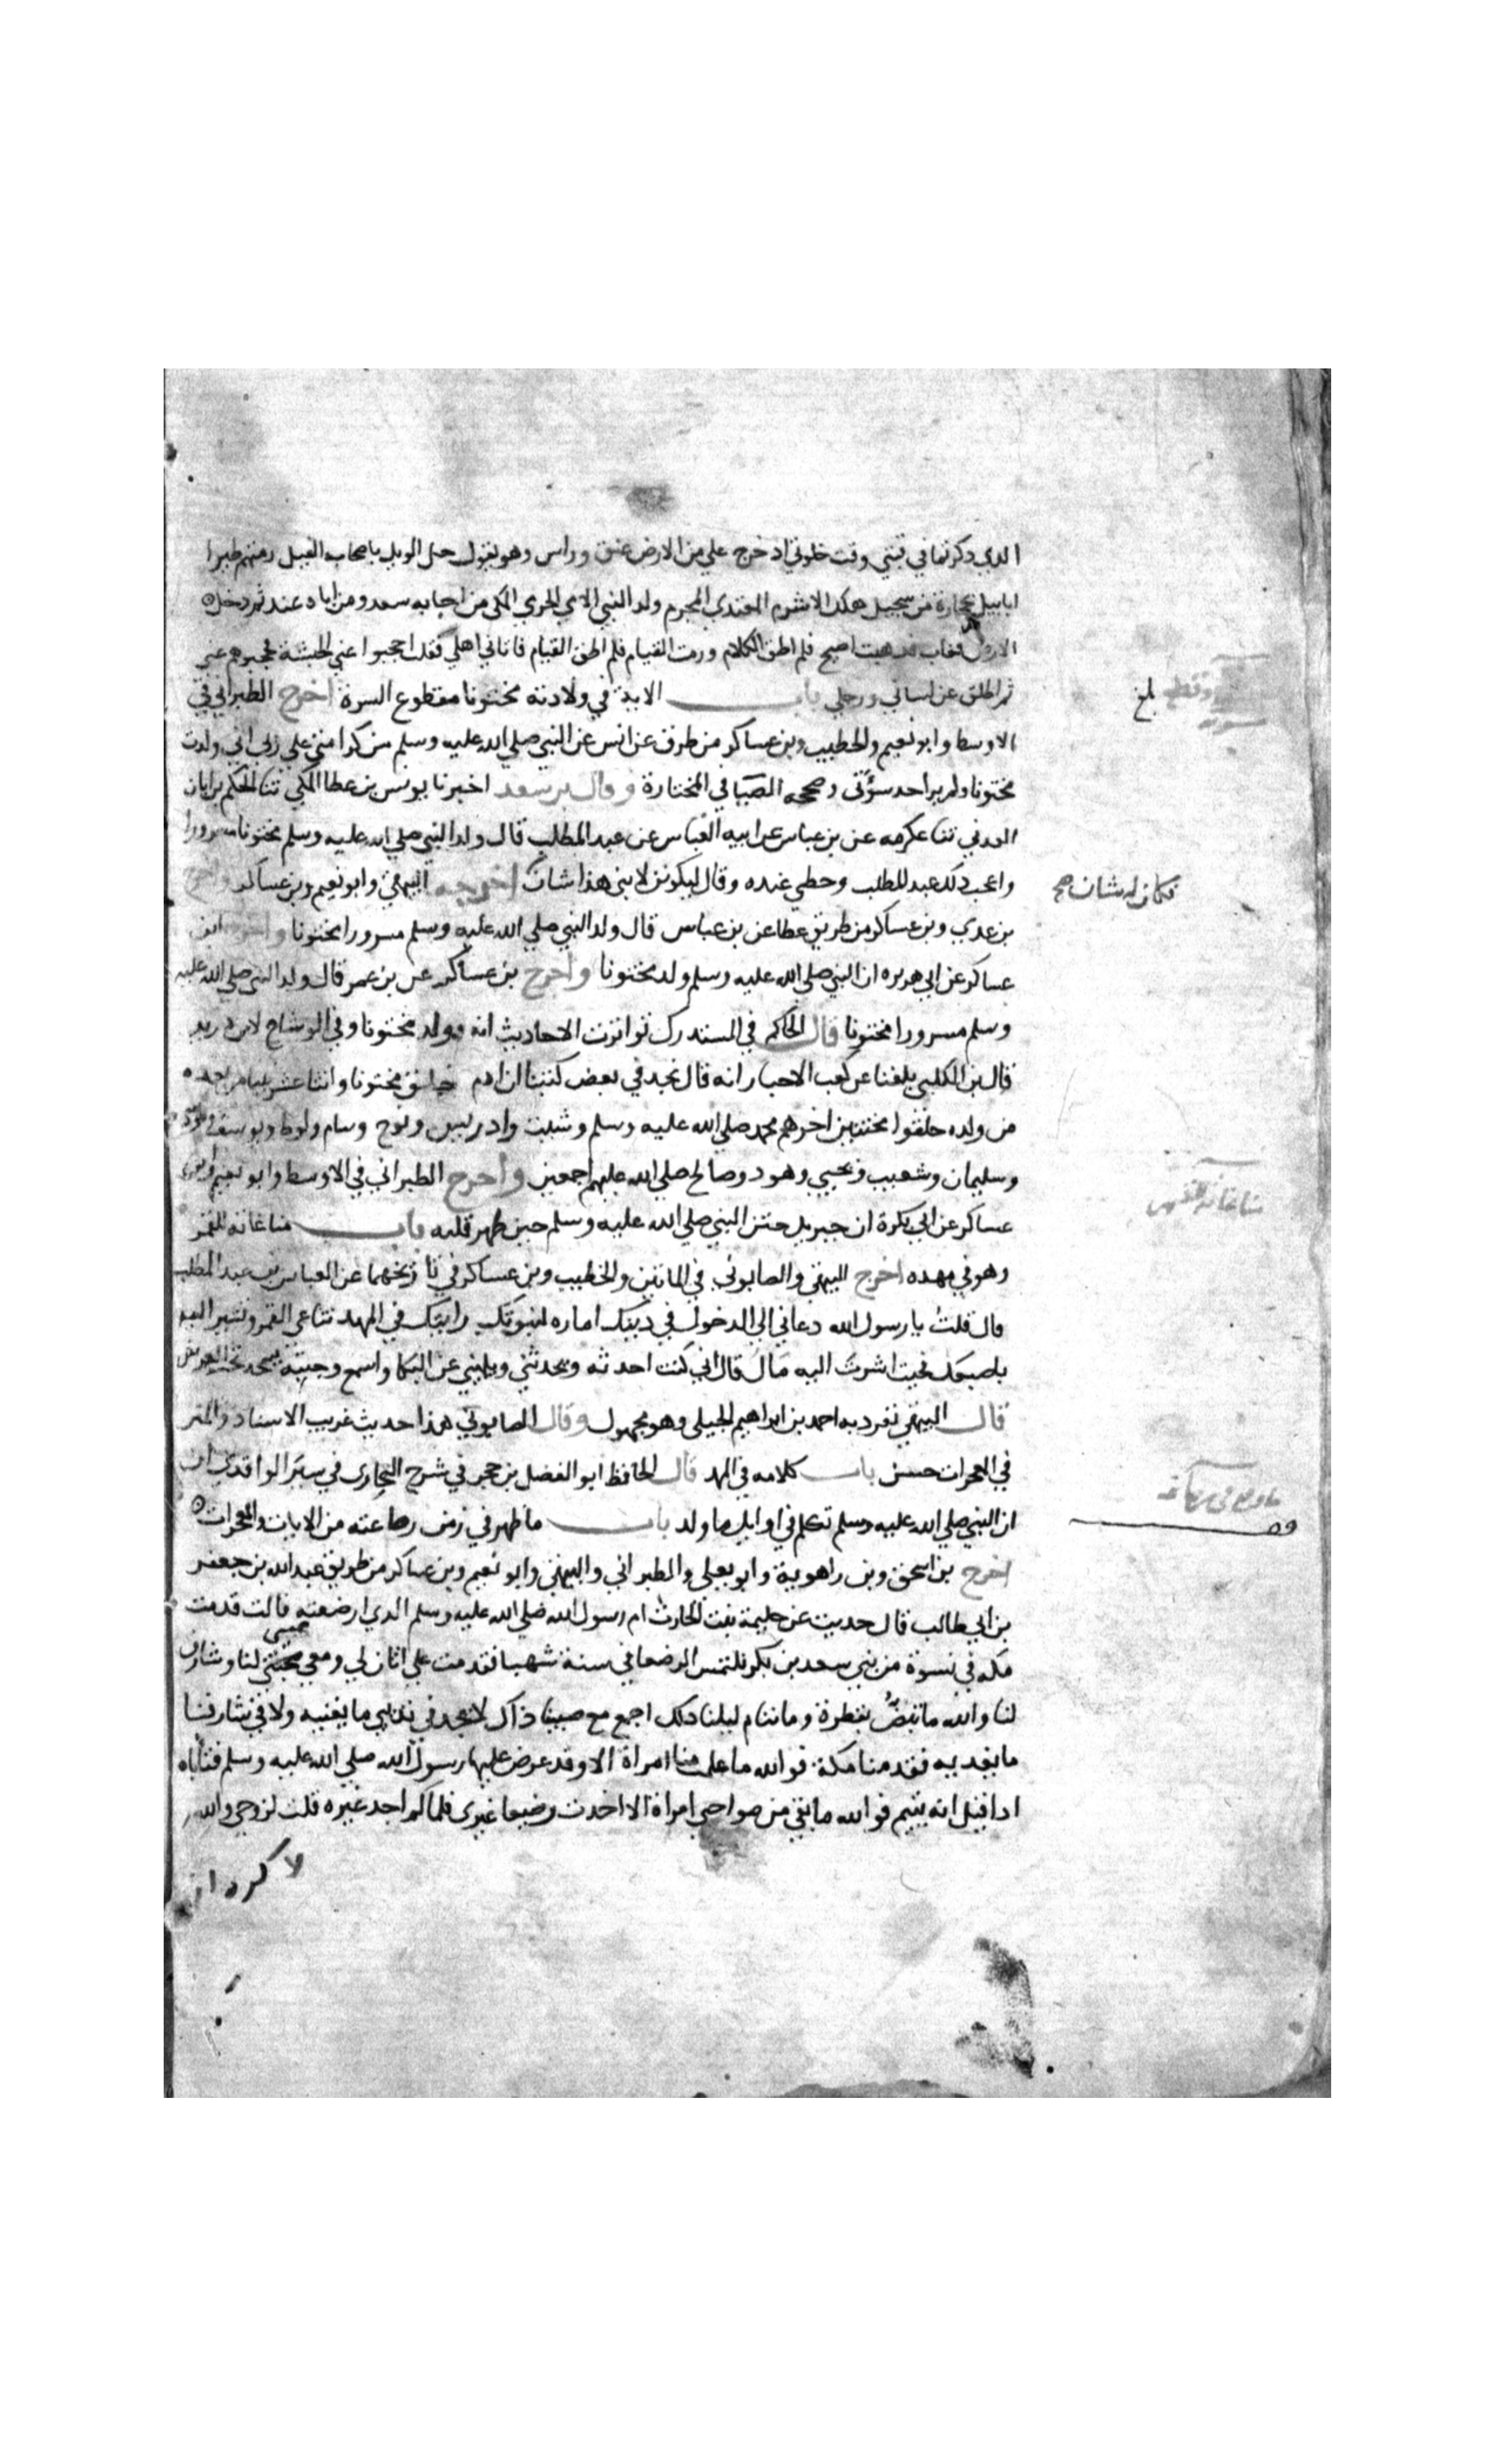 الذي ذكرتما في قبتي وقت خلوتي اذ خرج علي من الارض عنق وراس وهو يقول حل الويل باصحاب الفيل رمتهم طيرا
ابابيل بحجارة من سجيل هلك الاشرم المعتدي المجرم ولد النبي الامي الحرمي المكي من اجابه سعد ومن اباه عند ثم دخل
الارض فغاب فذهبت اصيح فلم اطق الكلام ورمت القيام فلم اطق القيام فاتاني اهلي فقلت احجبوا عني الحبشة فحجبوهم عني
ثم اطلق عن لساني ورجلي باب الاية في ولادته مختونا مقطوع السرة اخرج الطبراني في
الاوسط وابو نعيم والخطيب وبن عساكر من طرق عن انس عن النبي صلي الله عليه وسلم من كرامتي علي ربي اني ولدت
مختونا ولم ير احد سؤتي وصححه الضيا في المختارة وقال بن سعد اخبرنا يونس بن عطا المكي ثنا الحكم بن ابان
العدني ثنا عكرمه عن بن عباس عن ابيه العباس عن عبد المطلب قال ولد النبي صلي الله عليه وسلم مختونا مسرورا
واعجب ذلك عبد المطلب وحظي عنده وقال ليكونن لابني هذا شان اخرجه البيهقي وابو نعيم وبن عساكر واخرج
فكان له شان صح
بن عدي وبن عساكر من طريق عطا عن بن عباس قال ولد النبي صلي الله عليه وسلم مسرورا مختونا واخرج ابن
عساكر عن ابي هريره ان النبي صلي الله عليه وسلم ولد مختونا واخرج بن عساكر عن بن عمر قال ولد النبي صلي الله عليه
وسلم مسرورا مختونا قال الحاكم في المستدرك تواترت الاحاديث انه ولد مختونا وفي الوشاح لابن دريد
قال بن الكلبي بلغنا عن كعب الاحبار انه قال نجد في بعض كتبنا ان ادم خلق مختونا واثنا عشر نبيا من بعده
من ولده خلقوا مختتنين اخرهم محمد صلي الله عليه وسلم وشيث وادريس ونوح وسام ولوط ويوسف وموسي
وسليمان وشعيب ويحيي وهود وصالح صلي الله عليهم اجمعين واخرج الطبراني في الاوسط وابو نعيم وبن
عساكر عن ابي بكرة ان جبريل ختن النبي صلي الله عليه وسلم حين طهر قلبه باب مناغاته للقمر
وهو في مهده اخرج البيهقي والصابوني في الماتين والخطيب وبن عساكر في تاريخهما عن العباس بن عبد المطلب
قال قلت يا رسول الله دعاني الي الدخول في دينك اماره لنبوتك رايتك في المهد تناغي القمر وتشير اليه
باصبعك فحيث اشرت اليه مال قال اني كنت احدثه ويحدثني ويلهيني عن البكا واسمع وجبته يسجد تحت العرش
قال البيهقي تفرد به احمد بن ابراهيم الجيلي وهو مجهول وقال الصابوني هذا حديث غريب الاسناد والمتن
في المعجزات حسن باب كلامه في المهد قال الحافظ ابو الفضل بن حجر في شرح البخاري في سير الواقدي ان
ان النبي صلي الله عليه وسلم تكلم في اوايل ما ولد باب ما ظهر في زمن رضاعته من الايات والمعجزات
اخرج بن اسحق وبن راهوية وابو يعلي والطبراني والبيهقي وابو نعيم وبن عساكر من طريق عبد الله بن جعفر
بن ابي طالب قال حديث عن حليمة بنت الحارث ام رسول الله صلي الله عليه وسلم الذي ارضعته قالت قدمت
مكه في نسوة من بني سعد بن بكر نلتمس الرضعا في سنة شهبا فقدمت علي اتان لي ومعي صبي لنا وشارف
لنا والله ما تبض بقطرة وما ننام ليلنا ذلك اجمع مع صبينا ذاك لا نجد في ثديي ما يغنيه ولا في شارفنا
ما يغديه فقدمنا مكة فوالله ما علمت منا امراة الا وقد عرض عليها رسول الله صلي الله عليه وسلم فتاباه
اذا قيل انه يتيم فوالله ما بقي من صواحبي امراة الا اخذت رضيعا غيري فلما لم اجد غيره قلت لزوجي والله
لا كره ان